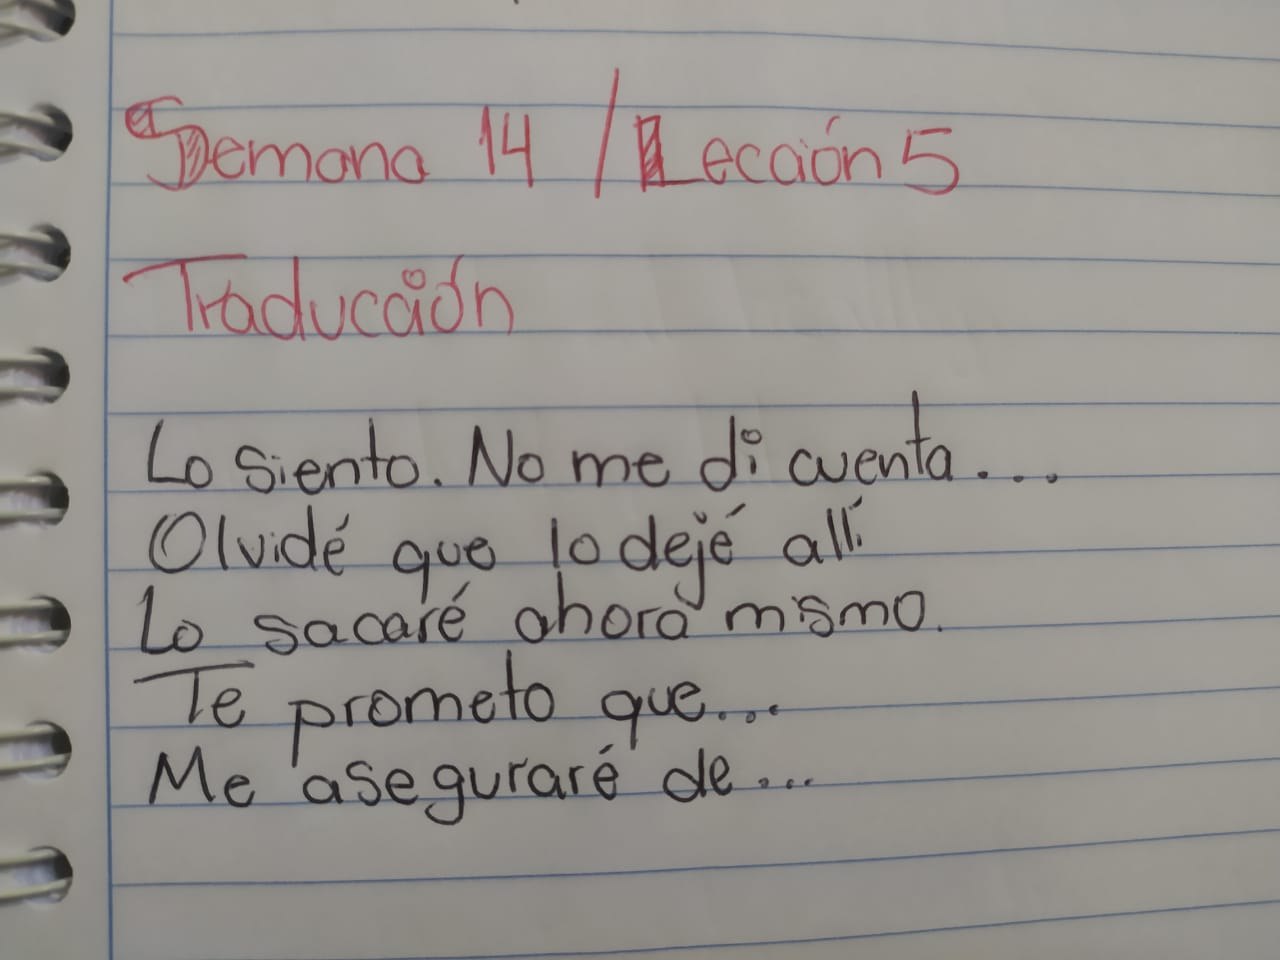 Semana 14 / Lección 5
Traducción
Lo siento. No me di cuenta....
Olvidé que lo dejé allí
Lo sacaré ahora mismo.
Te prometo que...
Me aseguraré de...